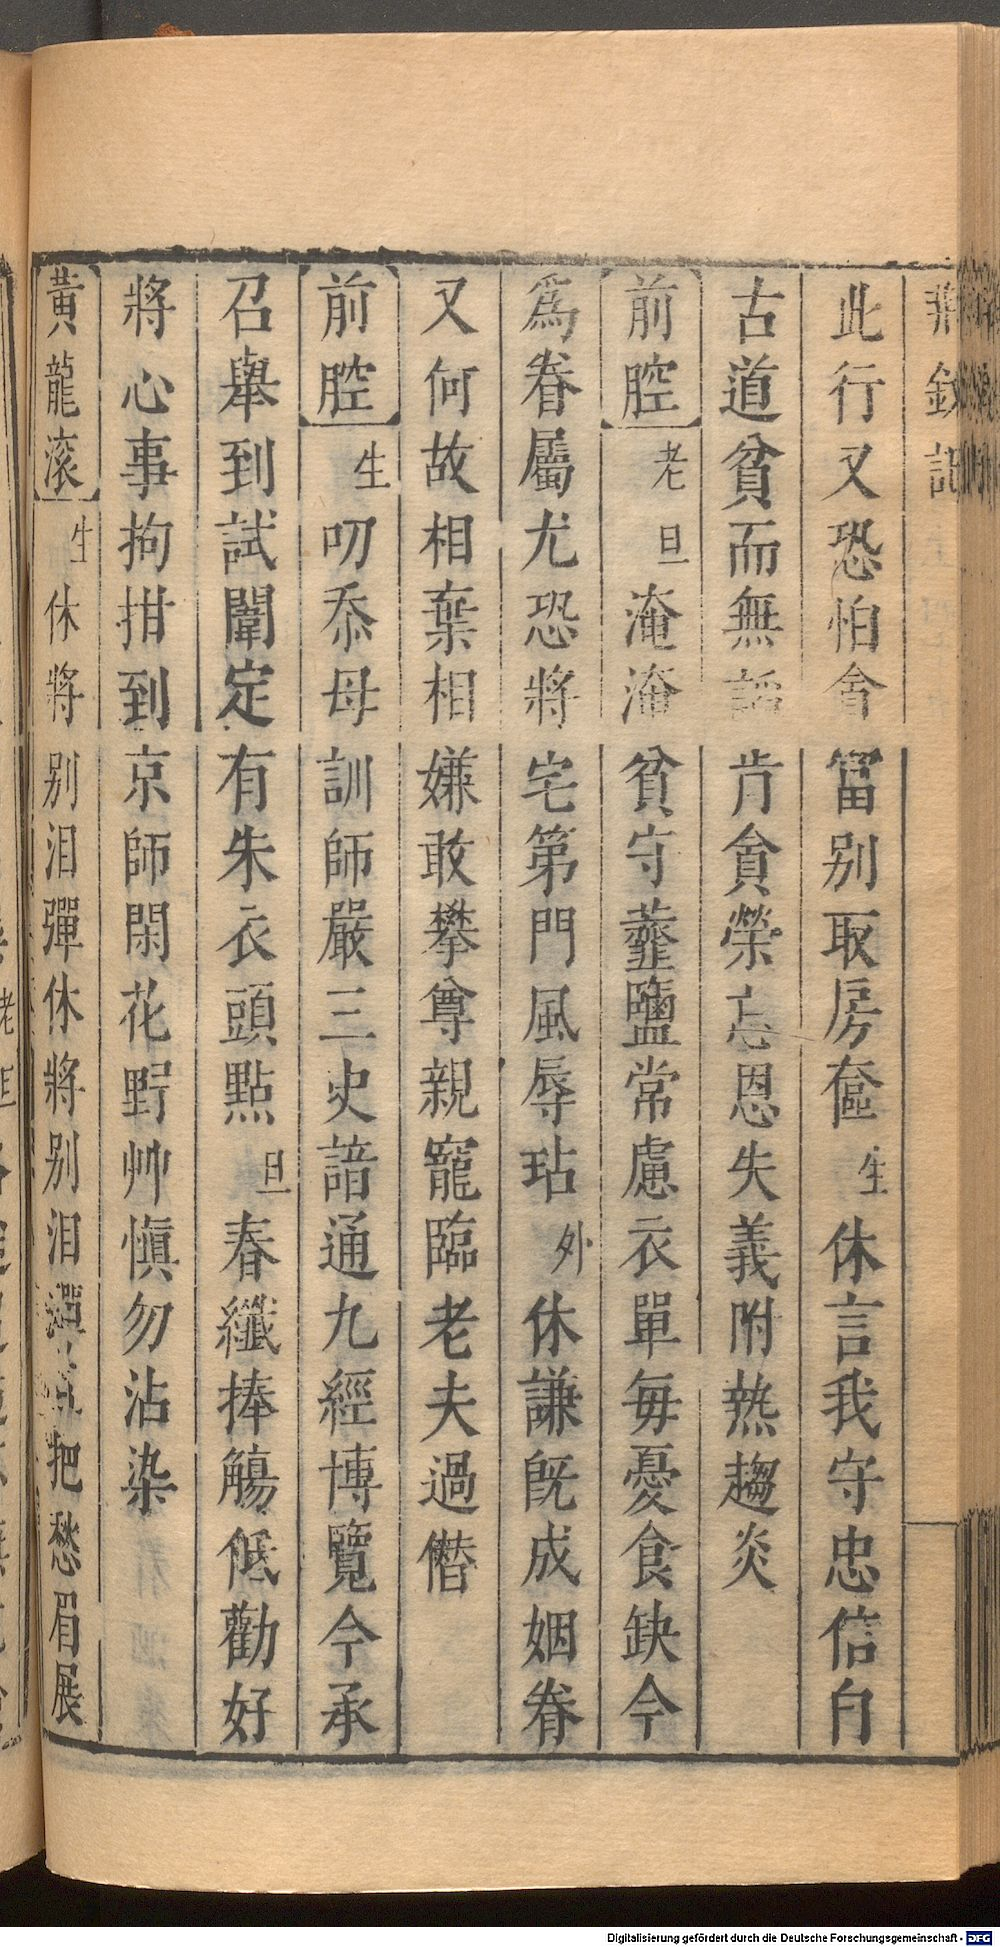 荊釵記
此行又恐怕舍富别取房奩生休言我守忠信自
古道貧而無謟肯貪榮忘恩失義附𤍠趨炎
【前腔】老旦淹淹貧守虀鹽常慮衣單毎憂食缺今
爲眷屬尤恐將宅第門風辱玷外休謙既成姻眷
又何故相棄相嫌敢攀尊親寵臨老夫過僭
【前腔】生叨忝母訓師嚴三史諳通九經博覽今承
召舉到試闈定有朱衣頭點旦春纖捧觴低勸好
將心事拘拑到京師閑花野艸愼勿沾染
【黃龍滚】生休將别泪彈休將别泪彈 把愁眉展
Digitalisierung gefördert durch die Deutsche Forschungsgemeinschaft - DFG